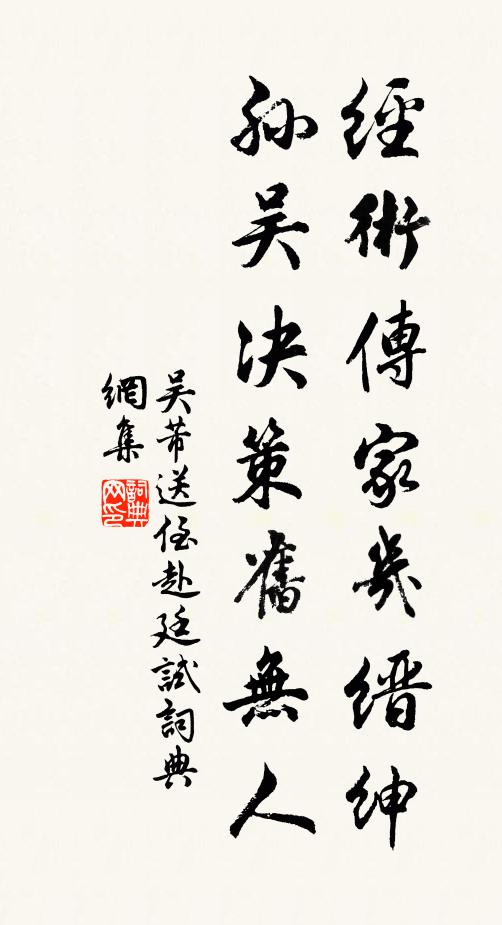 經術傳家幾縉紳
孫吴決策舊無人
吴芾送侄赴廷試詞典
網集
詞典網印